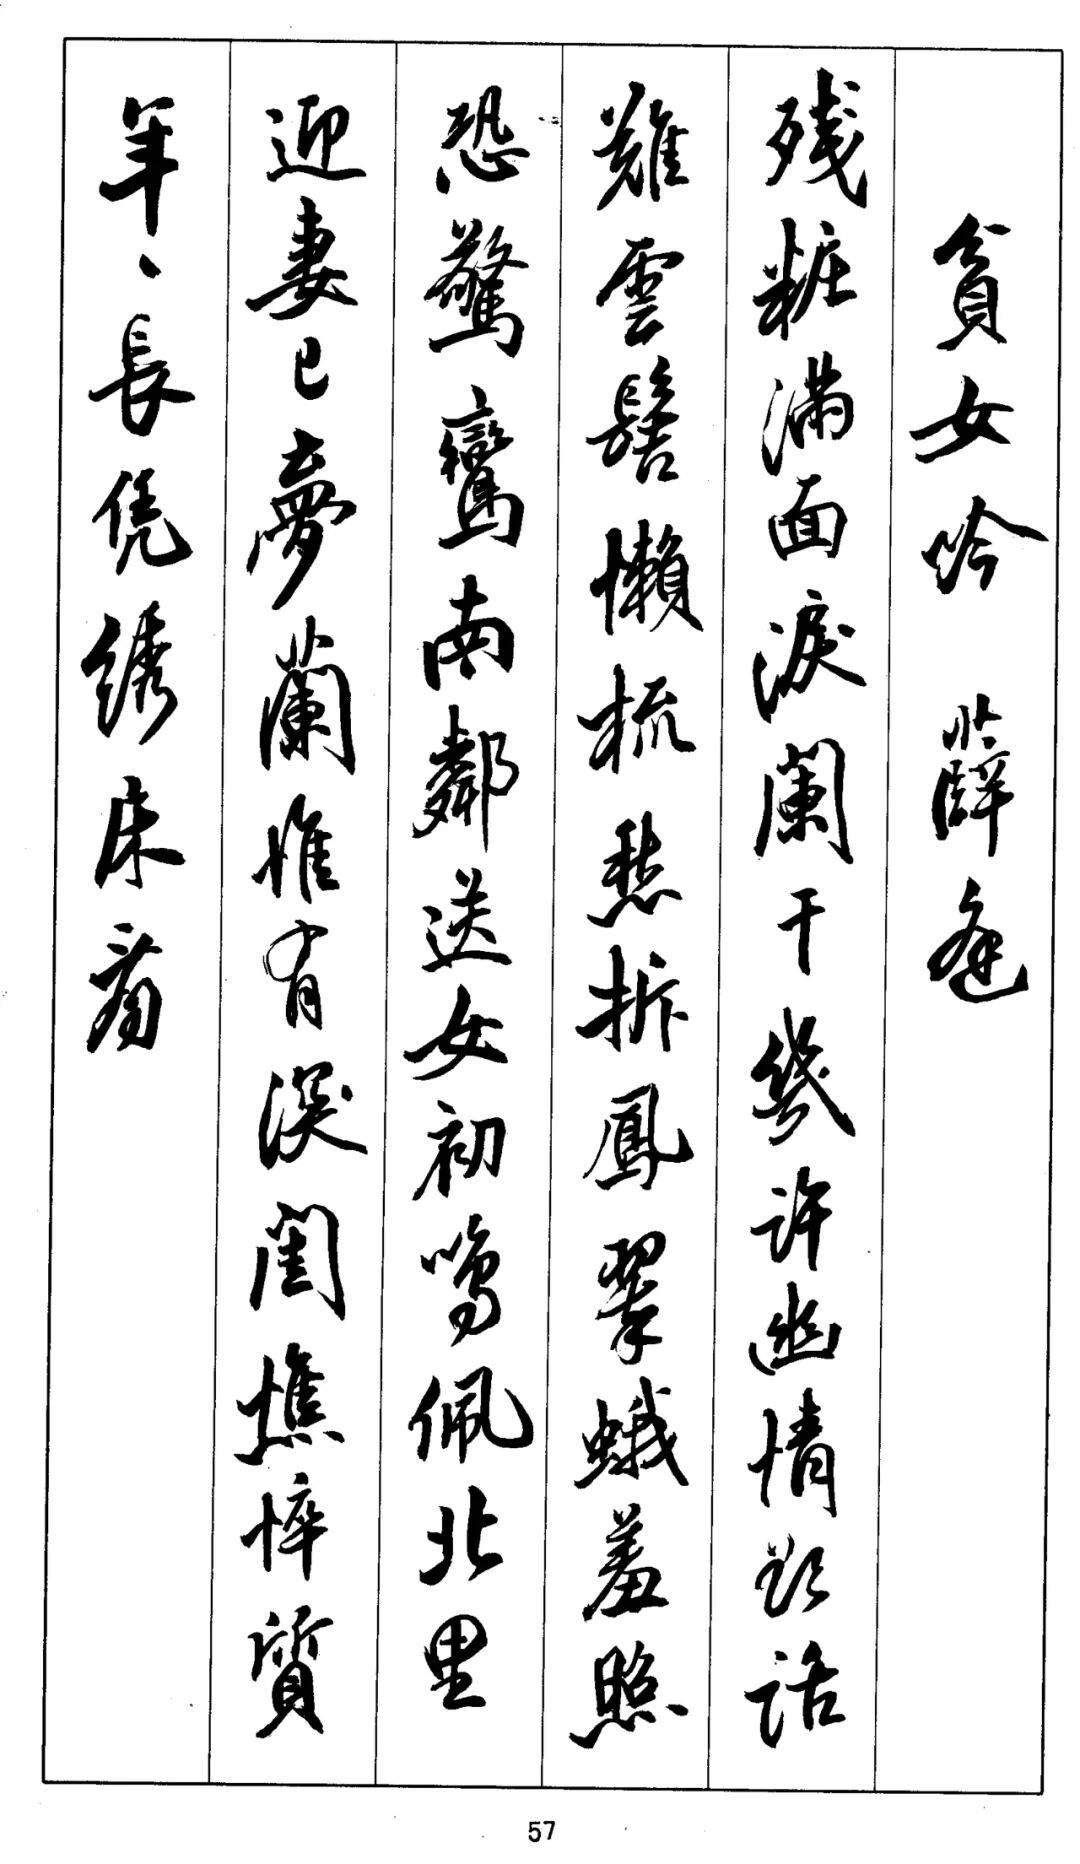 貧女吟 薛逢
残粧満面淚闌干幾許幽情欲話
難雲髻懶梳愁拆鳳翠蛾羞照
恐驚鸞南鄰送女初鳴佩北里
迎妻已夢蘭惟有深閨憔悴質
年、長凭绣床看
57